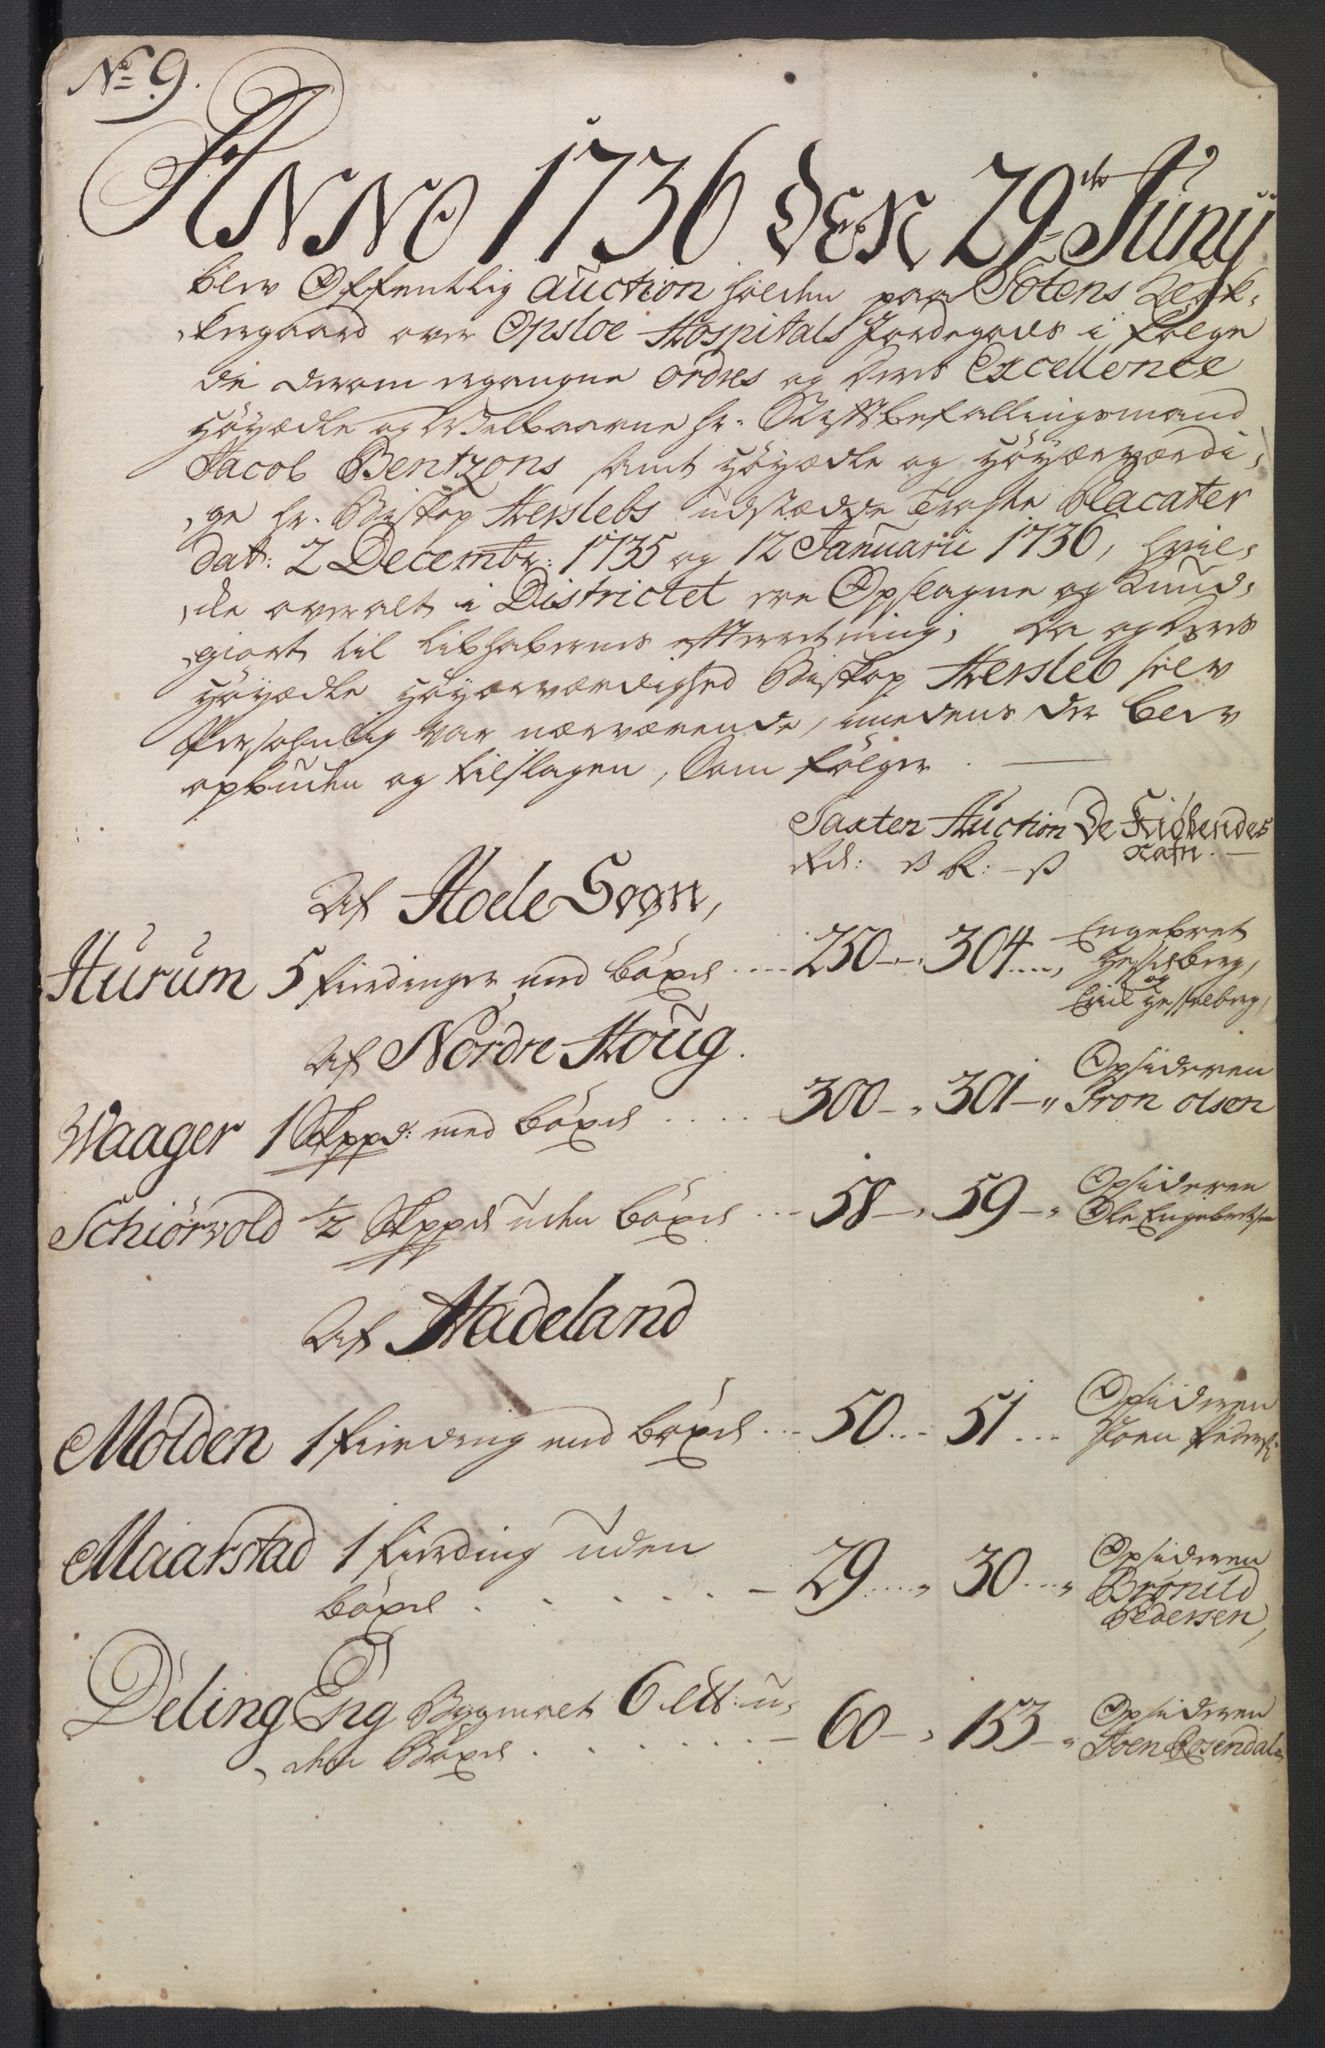 No 9.
ANNO 1736 den 29de Junij
blev Offentlig Auction holden paa Totens Lensk-
-kergaard over Opsloe Hospitals Jordegods i følge
de derom ergangne ordres og deres Excellence
Höyædle og Welbaarne Hr. Stiftbefallingsmand
Jacob Bentzons samt Höyædle og Höyærværdi-
-ge Hr. Biskop Herslebs udstædde trøkte Placater
dat: 2 Decembr: 1735 og 12 Januarii 1736, hvil-
-ke overalt i Districtet ere Opslagne og Kund-
giort til Libhabernes efterretning; Da og deres
Höyædle Höyærværdighed Biskop Hersleb selv
Persohnlig var nærværende, imedens der blev
opbuden og tilslagen, som følger.
Taxten Auction De Kiøbendes
Rd: ß R: ß Nafn.
Af Hole Sogn,
Hurum 5 fierdinger med böxel .... 250 304 .... Engebret
Hesselberg,
og
Eriil Hesselberg,
Af Nordre Houg.
Waager 1 Skppd: med böxel .... 300 301 Opsideren
Tron Olsen
Schiörvold 1/2 Skppd uden böxel ... 58 59 Opsideren
Ole Engebretsen
Af Hadeland
Molden 1 fierding med böxel ... 50 ... 51 ... Opsideren
Joen Peders:
Maarstad 1 fierding uden
böxel . . . . . . 29 .... 30 .... Opsideren
Brönild
Pedersen,
Deling Eng Bygmæl 6 str: u-
-den Böxel . . . . . . 60 153 Opsideren
Joen Rosendal